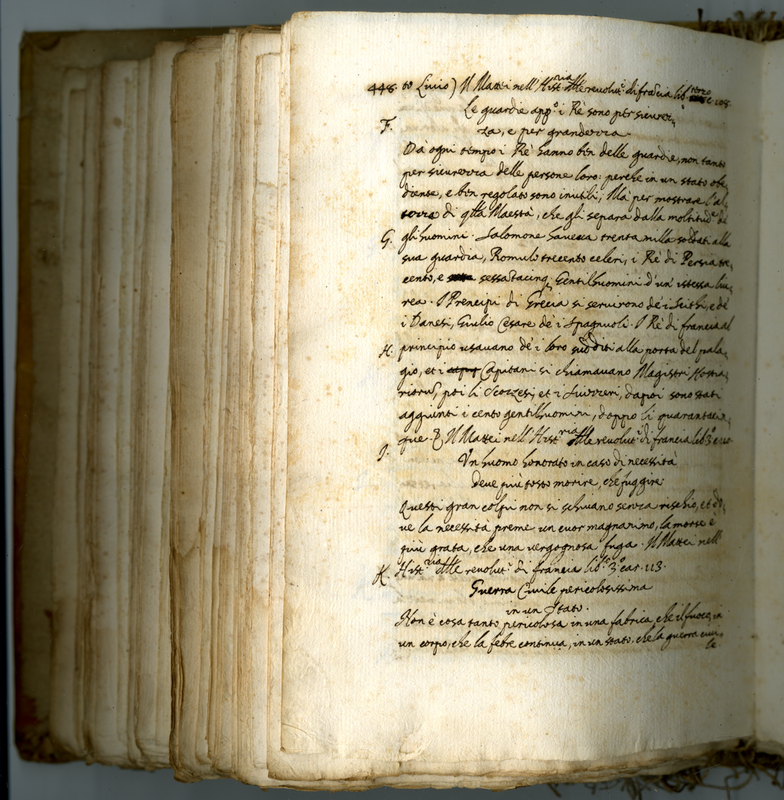 448. Livio) Il Mattei nell'Hist.ria delle revolut.i di francia lib.
Le guardie app.o i Rè sono per sicurez,
F. za, e per grandezza
Da ogni tempo i Rè hanno ben delle guardie, non tanto
per sicurezza delle persone loro: perche in un stato obe,
diente, e ben regolato sono inutili; Ma per mostrare l'al,
tezza di q.lla Maestà, che gli separa dalla moltitud.e de
G. gli huomini. Salomone haveva trenta milla soldati alla
sua guardia, Romulo trecento celeri, i Rè di Persia tre,
cento, e sessatacinq. Gentilhuomini d'un'istessa liu,
rea. I Prencipi di Grecia si servirono de i Scithi, e de
i Danesi, Giulio Cesare de i Spagnuoli. I Rè di francia al
H. principio usavano de i loro sudditi alla porta del pala,
gio, et i Capitani si chiamavano Magistri Hostia,
riorum, poi li Scozzesi, et i Suizzeri, dapoi sono stati
aggiunti i cento gentilhuomini, doppio li quarantacin,
que. Il Mattei nell'Hist.ria delle revolut.i di francia lib. 3.o
I. Un huomo honorato in caso di necessità
deve più tosto morire, che fuggire
Questi gran colpi non si schivano senza rischio, et do,
ve la necessita preme un cuor magnanimo, la morte è
più grata, che una vergognosa fuga. Il Mattei nell'
K. Hist.ria delle revolut.i di francia lib. 3.o car. 113.
Guerra Civile pericolosissima
in un Stato.
Non è cosa tanto pericolosa in una fabrica, che il fuoco, in
un corpo, che la febre continua, in un stato, che la guerra civi,
le.